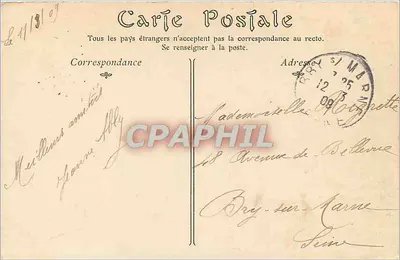 Le 11/3/09
Carte Postale
Tous les pays étrangers n'acceptent pas la correspondance au recto.
Se renseigner à la poste.
Correspondance
Adresse
BRY s/ MARNE
12 3
09
Meilleures amitiés
Jeanne
Mademoiselle
48 Avenue de Bellevue
Bry-sur-Marne
Seine
CPAPHIL